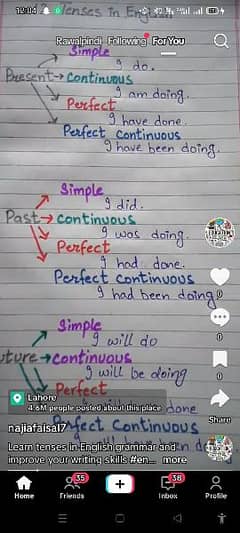 12:04
Tenses in English
Rawalpindi Following For You
Simple
I do.
Present → continuous
I am doing.
Perfect
I have done.
Perfect continuous
I have been doing.
Simple
I did.
Past → continuous
I was doing.
Perfect
I had done.
Perfect continuous
I had been doing
0
Simple
I will do
0
uture → continuous
I will be doing
0
Perfect
Lahore
4.6M people posted about this place
done
Share
najiafaisal7
Perfect Continuous
Learn tenses in English grammar and
improve your writing skills #en... more
35
38
Home
Friends
Inbox
Profile